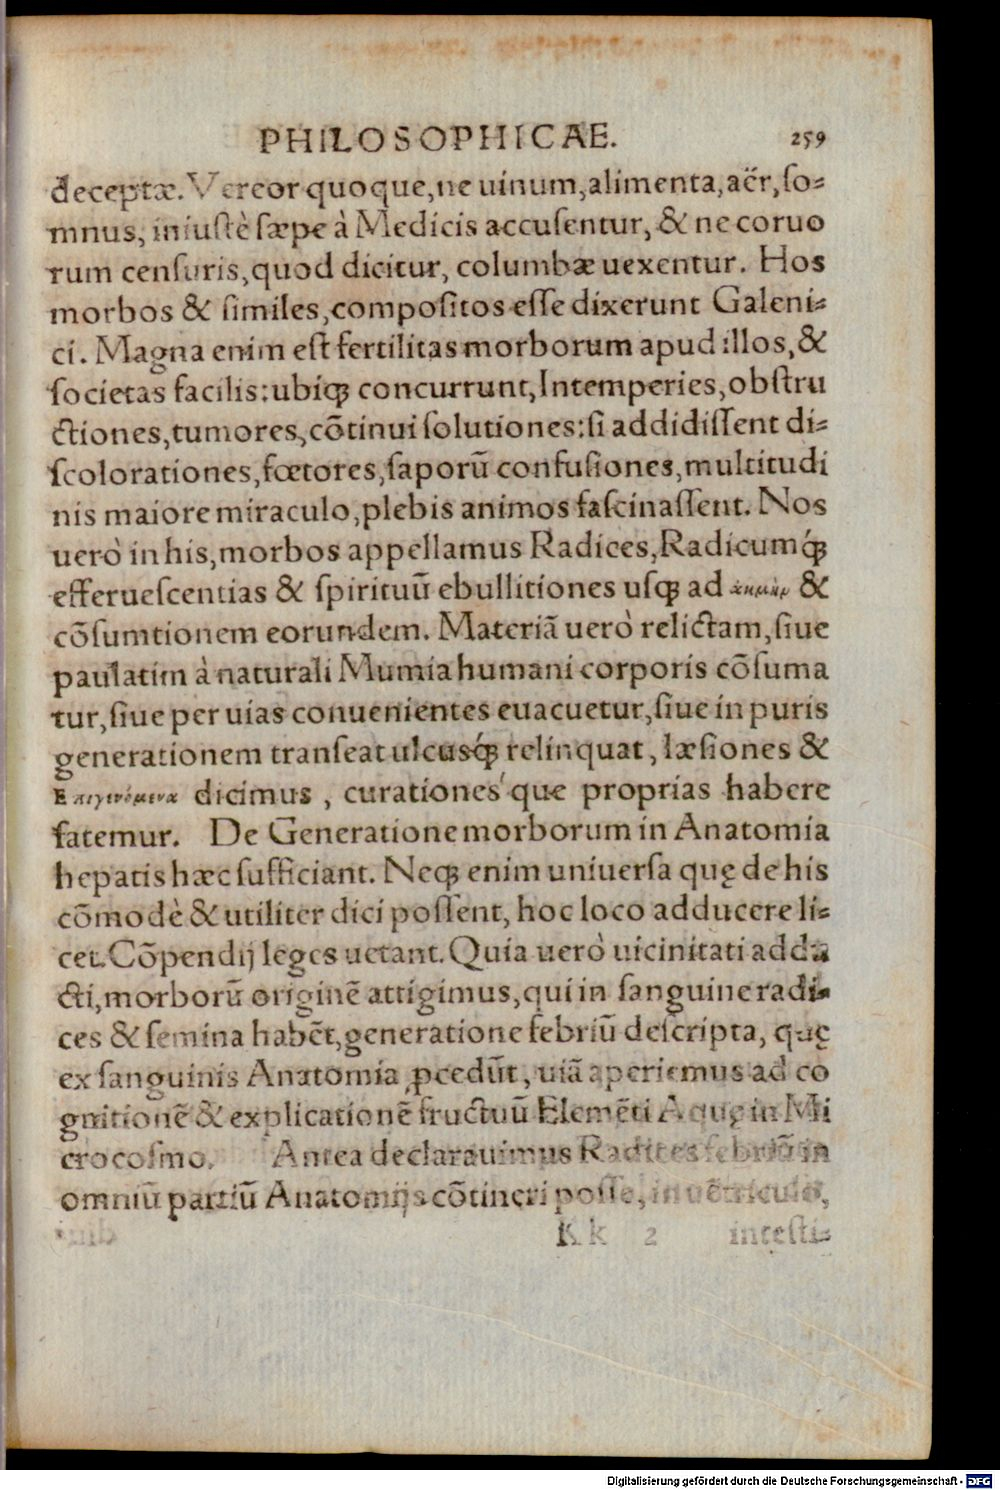 PHILOSOPHICAE. 259
deceptæ. Vereor quoque, ne uinum, alimenta, aër, so-
mnus, iniustè sæpe à Medicis accusentur, & ne coruo
rum censuris, quod dicitur, columbæ uexentur. Hos
morbos & similes, compositos esse dixerunt Galeni-
ci. Magna enim est fertilitas morborum apud illos, &
societas facilis: ubiq; concurrunt, Intemperies, obstru
ctiones, tumores, cõtinui solutiones: si addidissent di-
scolorationes, fœtores, saporũ confusiones, multitudi
nis maiore miraculo, plebis animos fascinassent. Nos
uerò in his, morbos appellamus Radices, Radicumq́;
efferuescentias & spirituũ ebullitiones usq; ad ἀκμὴν &
cõsumtionem eorundem. Materiã uerò relictam, siue
paulatim à naturali Mumia humani corporis cõsuma
tur, siue per uias conuenientes euacuetur, siue in puris
generationem transeat ulcusq́; relinquat, læsiones &
Επιγινόμενα dicimus, curationeśque proprias habere
fatemur. De Generatione morborum in Anatomia
hepatis hæc sufficiant. Neq; enim uniuersa quę de his
cõmodè & utiliter dici possent, hoc loco adducere li-
cet. Cõpendij leges uetant. Quia uerò uicinitati addu
cti, morborũ originẽ attigimus, qui in sanguine radi-
ces & semina habẽt, generatione febriũ descripta, quę
ex sanguinis Anatomia ꝓcedũt, uiã aperiemus ad co
gnitionẽ & explicationẽ fructuũ Elemẽti Aquę in Mi
crocosmo. Antea declarauimus Radices febriũ in
omniũ partiũ Anatomijs cõtineri posse, in uẽtriculo,
Kk 2 intesti-
Digitalisierung gefördert durch die Deutsche Forschungsgemeinschaft - DFG